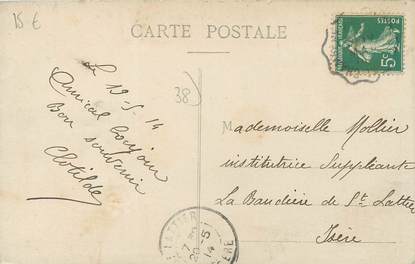 15 €
CARTE POSTALE
5c
Le 19-5-14
Amical bonjour
Bon souvenir
Clotilde
38)
Mademoiselle Mollier
institutrice Suppléante
La Baudière de St Lattier
Isère
LATTIER
20-5
14
ISÈRE